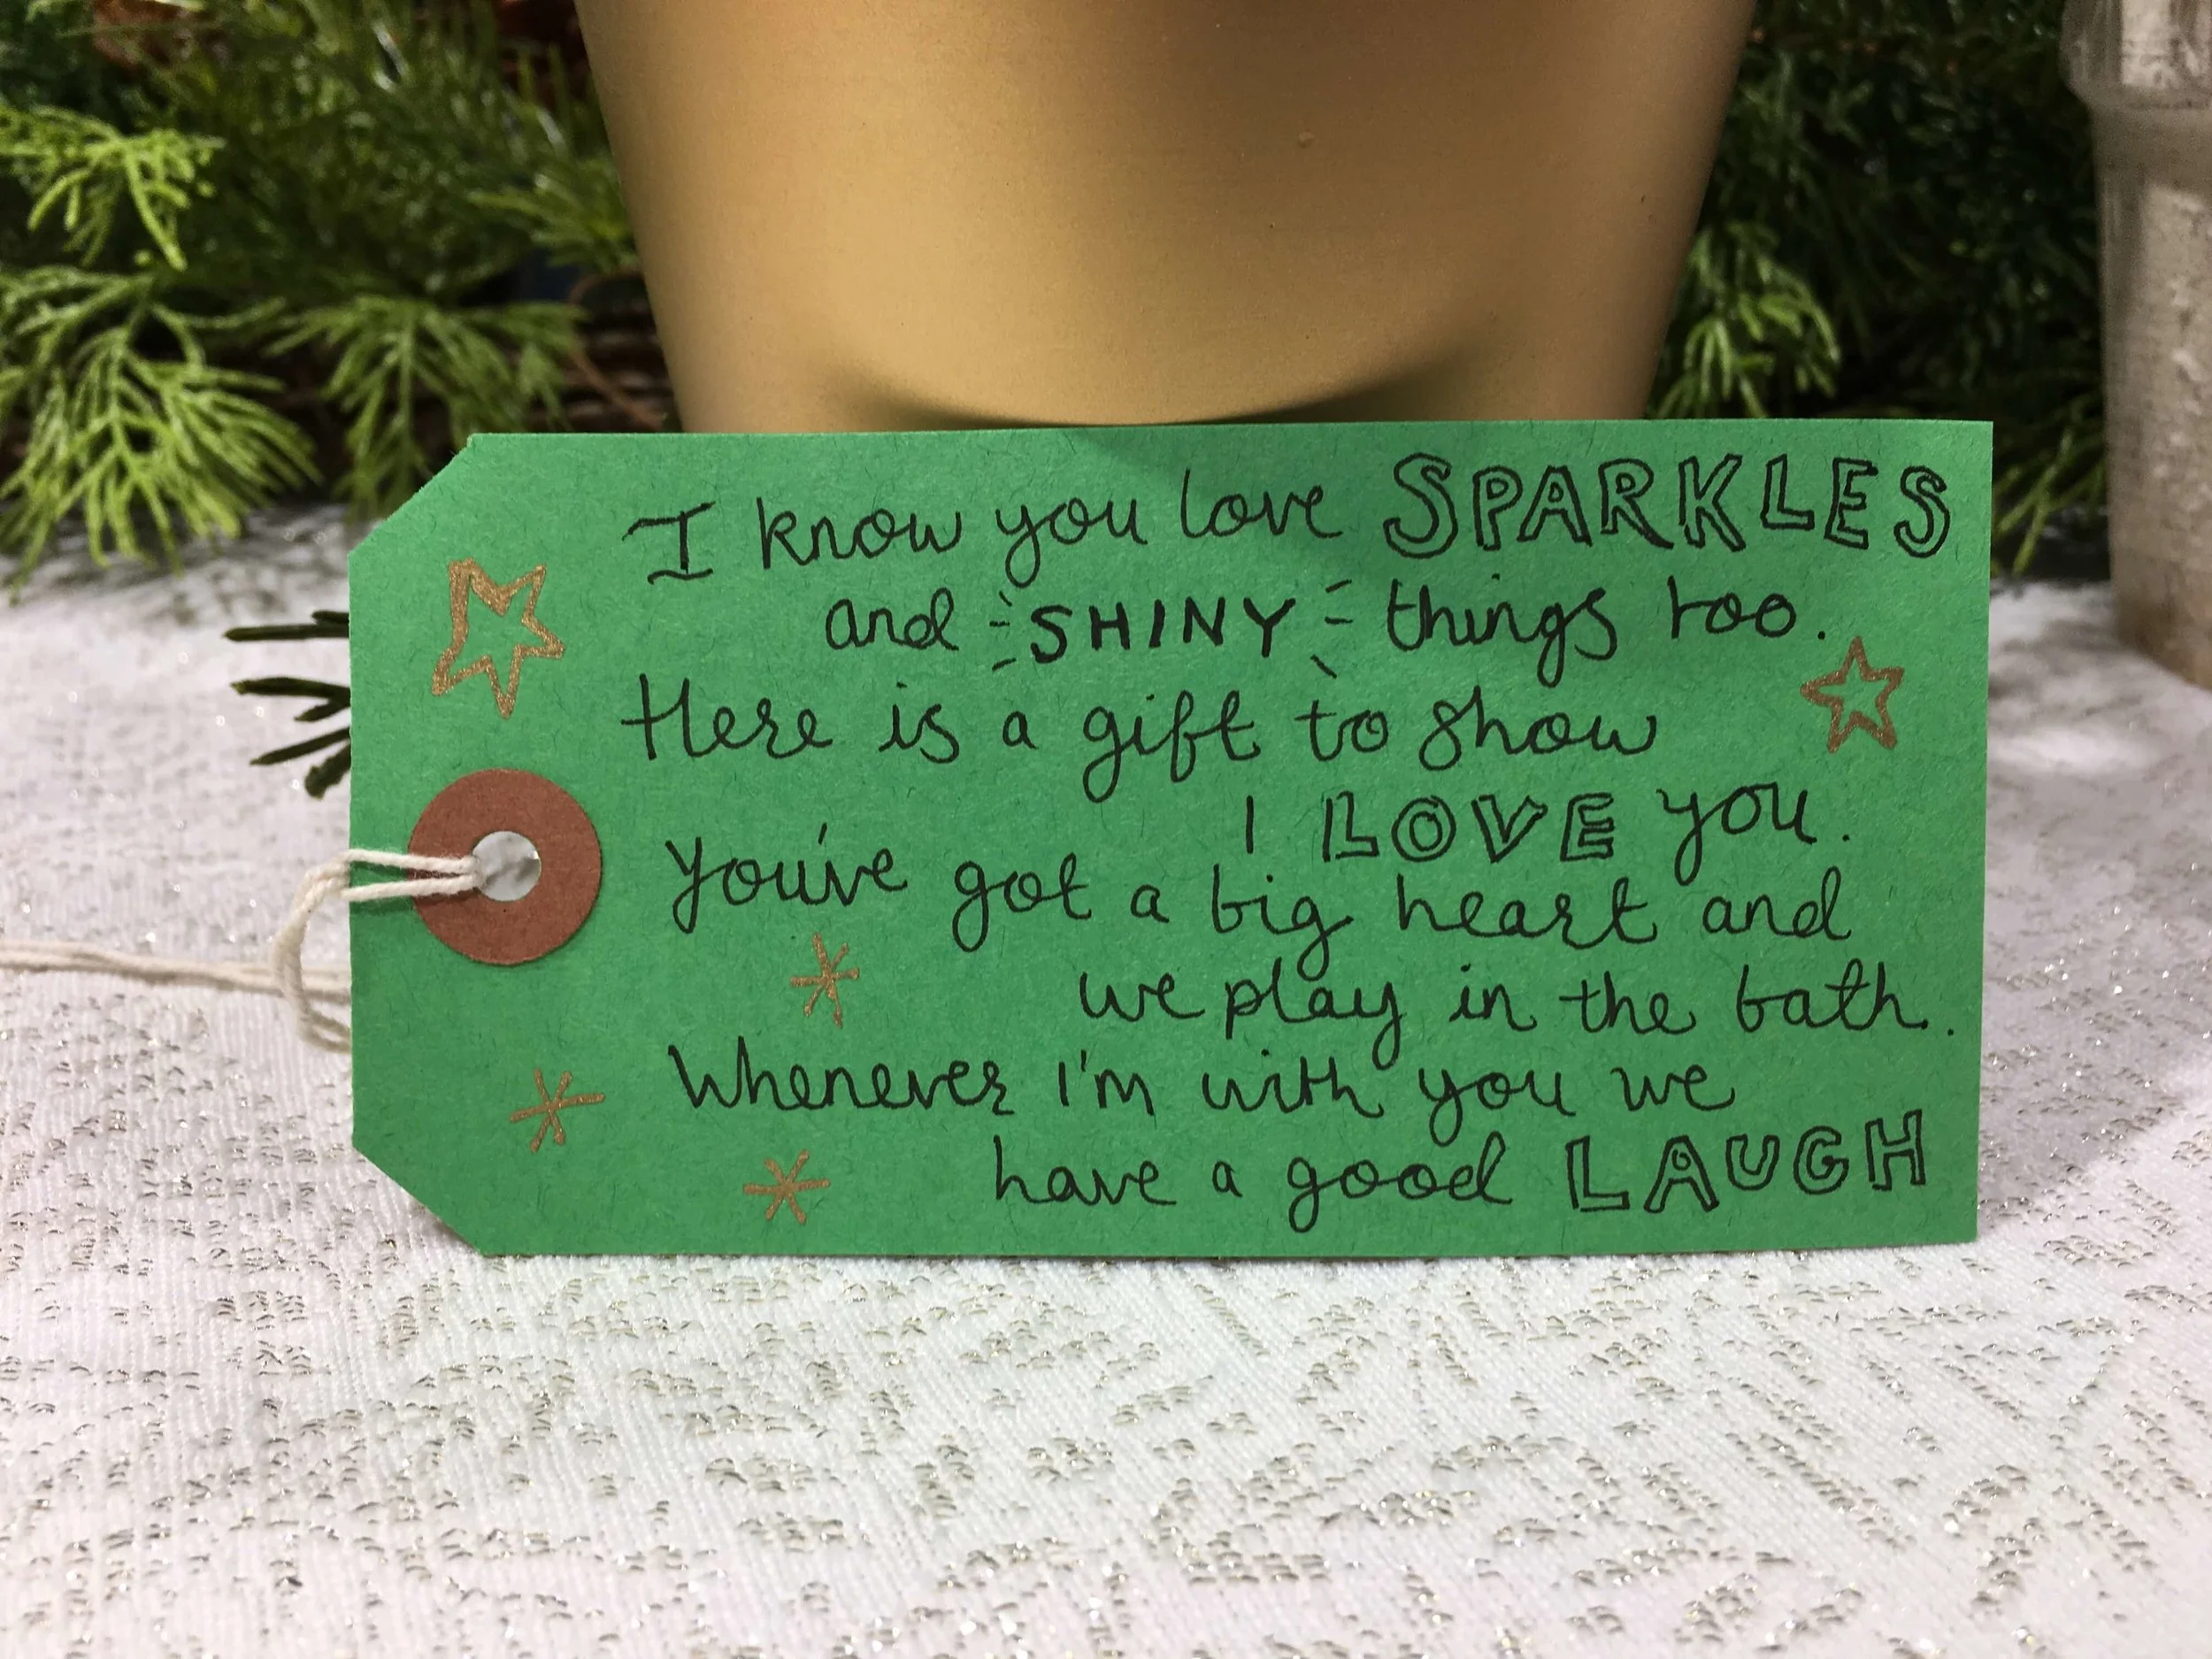 I know you love SPARKLES
and SHINY things too.
Here is a gift to show
I LOVE you.
You've got a big heart and
we play in the bath.
Whenever I'm with you we
have a good LAUGH